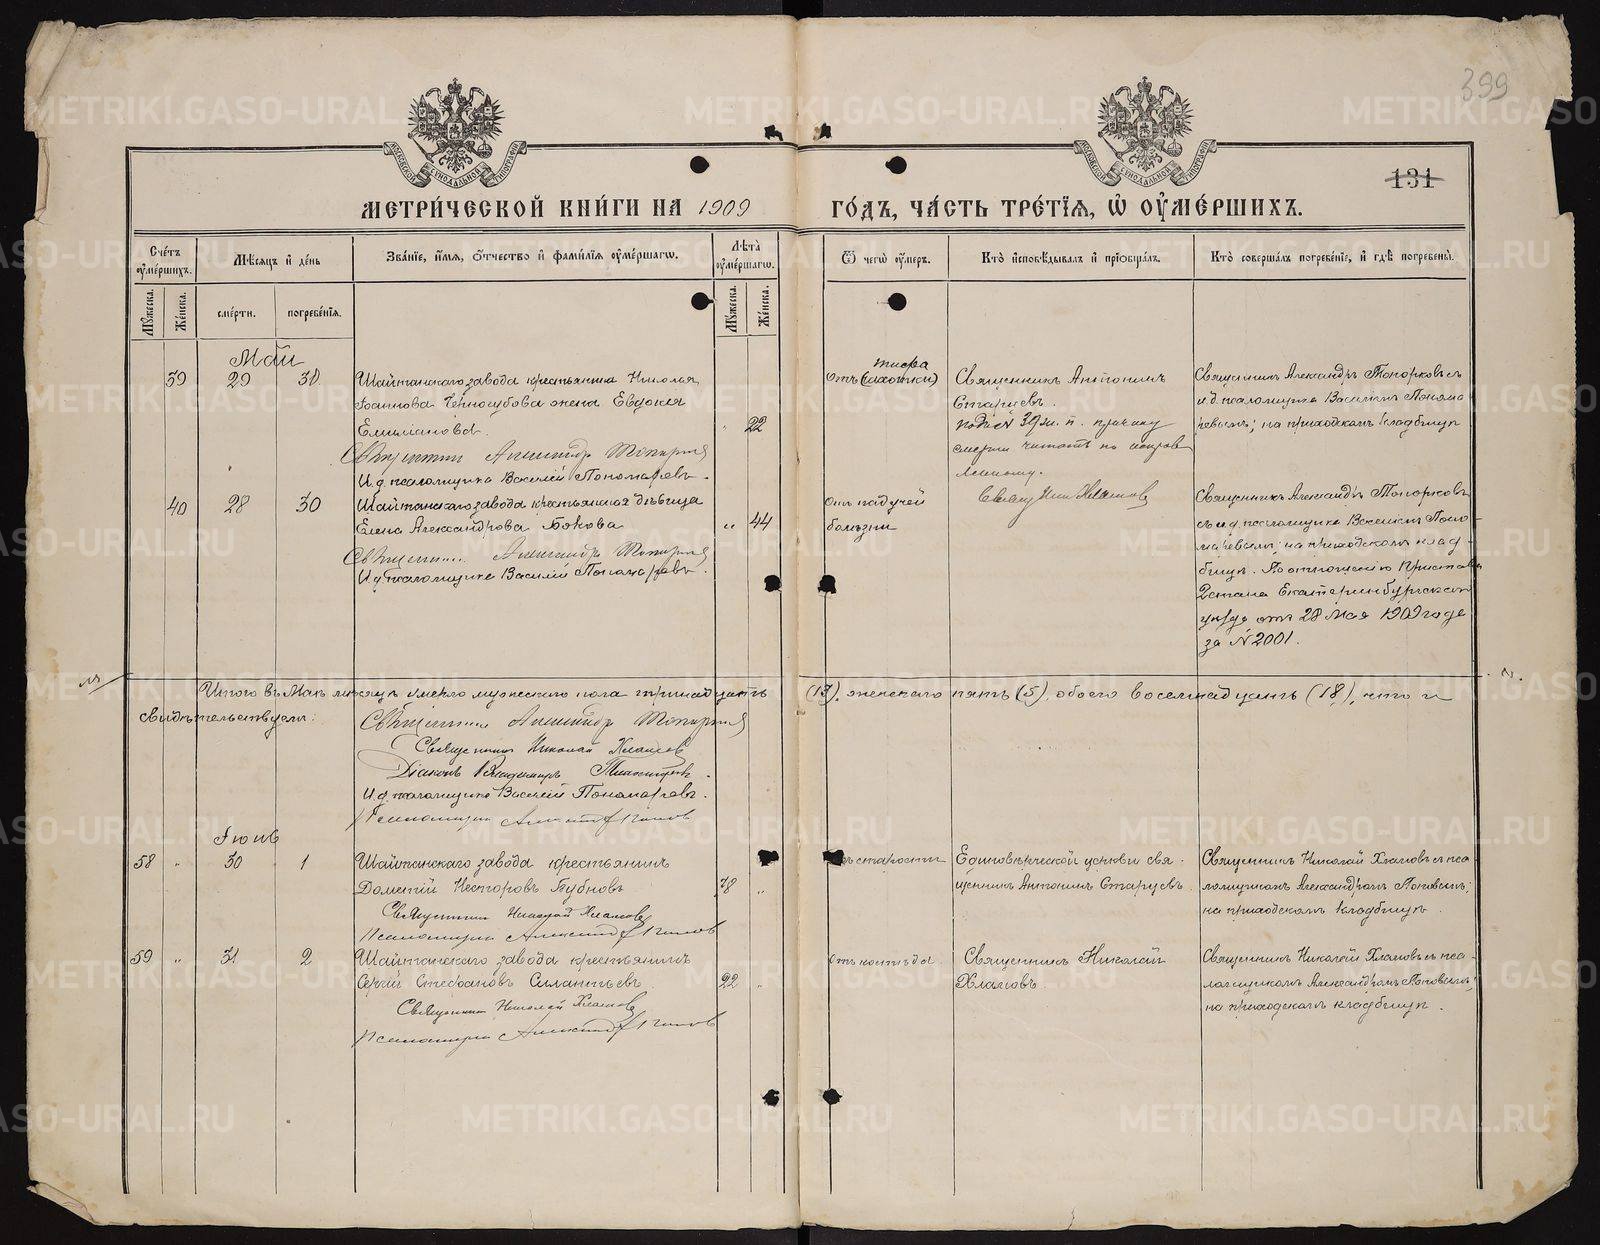 399
131
МЕТРИЧЕСКОЙ КНИГИ НА 1909 ГОДЪ, ЧАСТЬ ТРЕТІЯ, Ѿ ОУМЕРШИХЪ.
Счетъ оумершихъ.
Мѣсяцъ и день
Званіе, имя, отчество и фамилія оумершагѡ.
Лѣта оумершагѡ.
Ѿ чегѡ оумеръ.
Кто исповѣдывалъ и пріобщалъ.
Кто совершалъ погребеніе, и гдѣ погребены.
Мужеска.
Женска.
смерти.
погребенія.
Мужеска.
Женска.
Май
39 29 31
Шайтанскаго завода крестьянина Николая
Іоаннова жена Евдокія
Емиліанова.
22
тифа
Отъ (чахотки)
Священникъ Антонинъ
Старцевъ.
подъ № 39 ж. п. причину
смерти читать по
Священникъ Александръ Топорковъ съ
и. д. псаломщика Василіемъ Понома-
ревымъ; на приходскомъ кладбищѣ
Священникъ Александръ Топорковъ
И. д. псаломщика Василій Пономаревъ.
40 28 30
Шайтанскаго завода крестьянская дѣвица
Елена Александрова Бокова
„ 44
Отъ падучей
болѣзни
Священникъ Николай Хламовъ
Священникъ Александръ Топорковъ
съ и. д. псаломщика Василіемъ Поно-
маревымъ; на приходскомъ клад-
бищѣ. По отношенію Пристава
2 стана Екатеринбургскаго
уѣзда отъ 28 Мая 1909 года
за № 2001.
Священникъ Александръ Топорковъ
И. д. псаломщика Василій Пономаревъ.
Итого въ Маѣ мѣсяцѣ умерло мужескаго пола тринадцать (13), женскаго пять (5), обоего восемнадцать (18), что и
свидѣтельствуемъ:
Священникъ Александръ Топорковъ
Священникъ Николай Хламовъ
Діаконъ Владимиръ
И. д. псаломщика Василій Пономаревъ.
Псаломщикъ Александръ Поповъ
Іюнь
58 „ 30 1
Шайтанскаго завода крестьянинъ
Дометій Несторовъ Бубновъ
78 „
Отъ старости
Единовѣрческой церкви свя-
щенникъ Антонинъ Старцевъ
Священникъ Николай Хламовъ съ пса-
ломщикомъ Александромъ Поповымъ;
на приходскомъ кладбищѣ.
Священникъ Николай Хламовъ
Псаломщикъ Александръ Поповъ
59 „ 31 2
Шайтанскаго завода крестьянинъ
Сергій Стефановъ Силантьевъ
22 „
Священникъ Николай
Хламовъ.
Священникъ Николай Хламовъ съ пса-
ломщикомъ Александромъ Поповымъ;
на приходскомъ кладбищѣ.
Священникъ Николай Хламовъ
Псаломщикъ Александръ Поповъ
METRIKI.GASO-URAL.RU